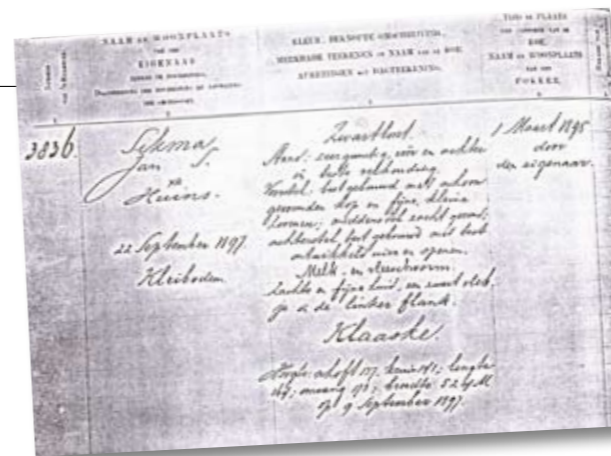 NAAM EN WOONPLAATS
VAN DEN
EIGENAAR
KLEUR, BEKNOPTE OMSCHRIJVING,
MERKBARE TEEKENEN EN NAAM VAN DE KOE.
AFMETINGEN EN DAGTEEKENING.
TIJD EN PLAATS
KOE,
NAAM EN WOONPLAATS
VAN DEN
FOKKER.
3836.
Sijkma
Jan S.
te
Huins.
22 September 1897
Kleibodem
Zwartbont.
Aard: zeer gunstig, vóór en achter
in beste verhouding.
Voorstel: best gebouwd met schoon
gewonden kop en fijne, kleine
hoornen; middenstel recht gevuld;
achterstel, best gebouwd met best
ontwikkeld uier en spenen.
Melk- en vleeschvorm.
Zachte en fijne huid, een zwart vlek-
je a. de linker flank.
Klaaske.
Hoogte schoft 137, kruis 141; lengte
164; omvang 178; breedte 52 c.M.
op 9 September 1897.
1 Maart 1895
door
den eigenaar.